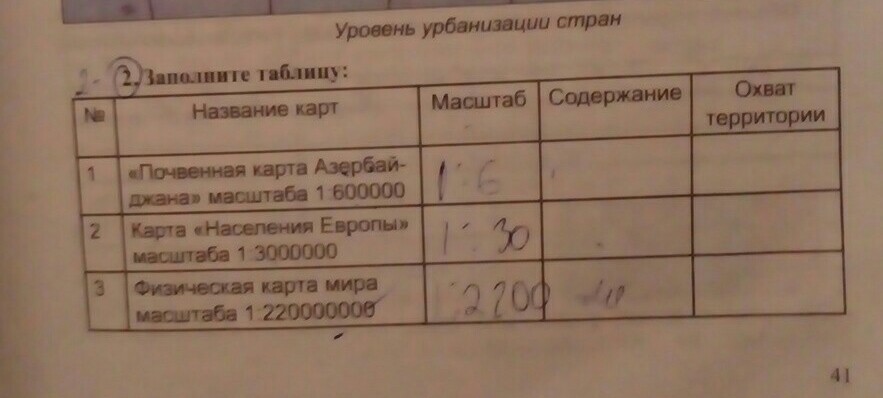 Уровень урбанизации стран
2- 2. Заполните таблицу:
№ Название карт Масштаб Содержание Охват территории
1 «Почвенная карта Азербай-
джана» масштаба 1:600000 1:6
2 Карта «Населения Европы»
масштаба 1:3000000 1:30
3 Физическая карта мира
масштаба 1:220000000 1:2200
41